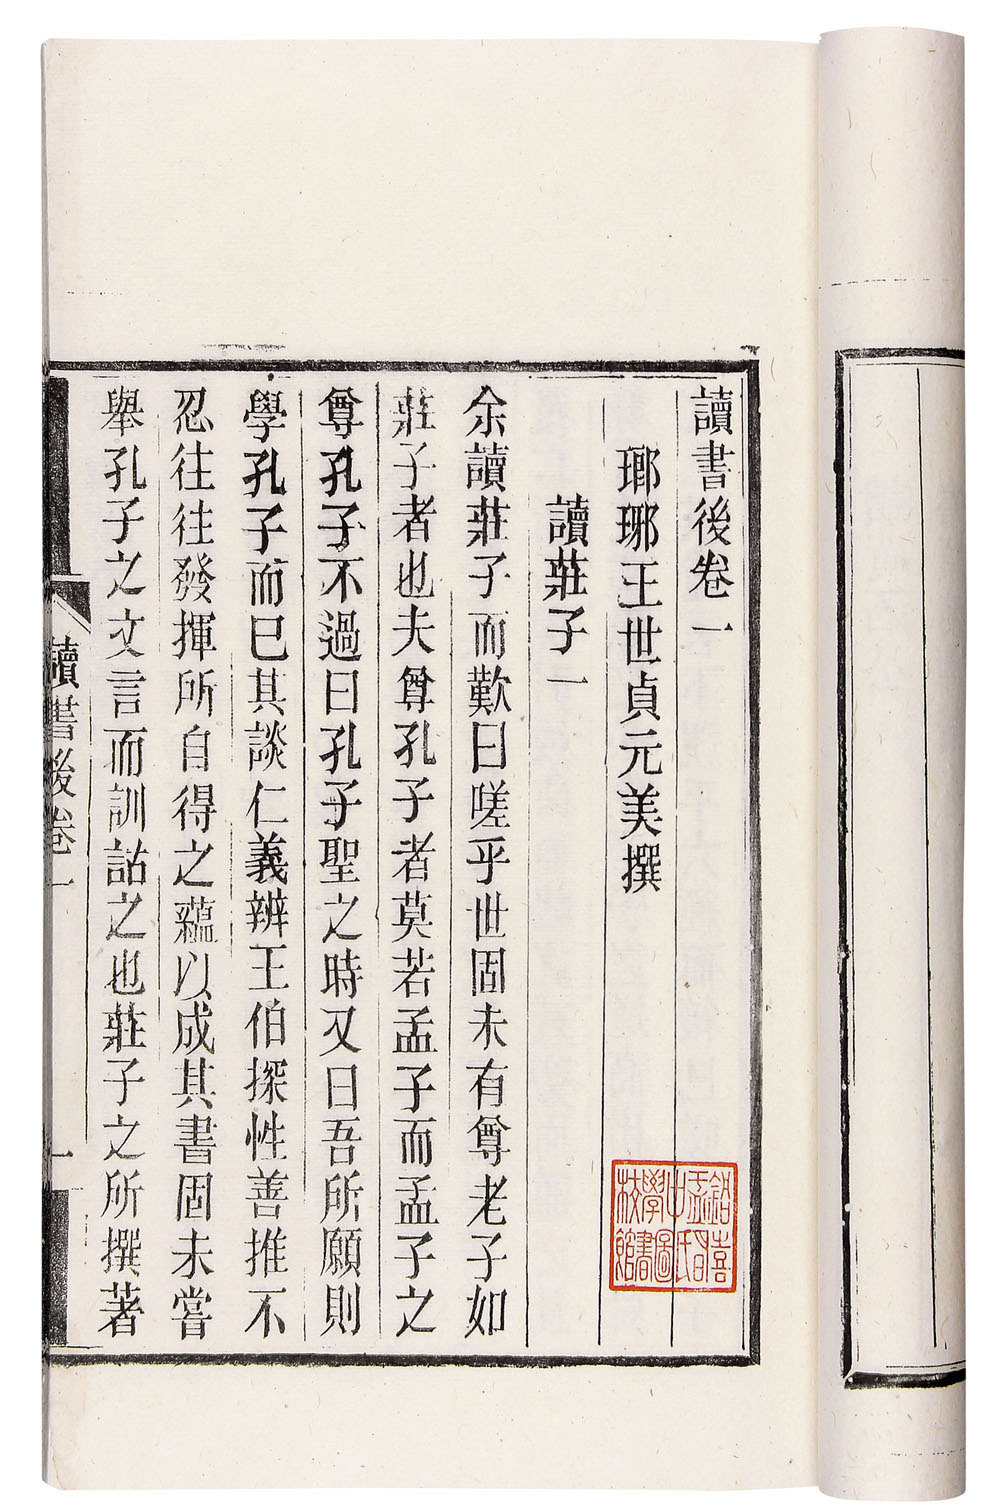 讀書後卷一
瑯琊王世貞元美撰
讀莊子一
余讀莊子而歎曰嗟乎世固未有尊老子如
莊子者也夫尊孔子者莫若孟子而孟子之
尊孔子不過曰孔子聖之時又曰吾所願則
學孔子而已其談仁義辨王伯探性善推不
忍往往發揮所自得之蘊以成其書固未嘗
舉孔子之文言而訓詁之也莊子之所撰著
讀書後卷一
一